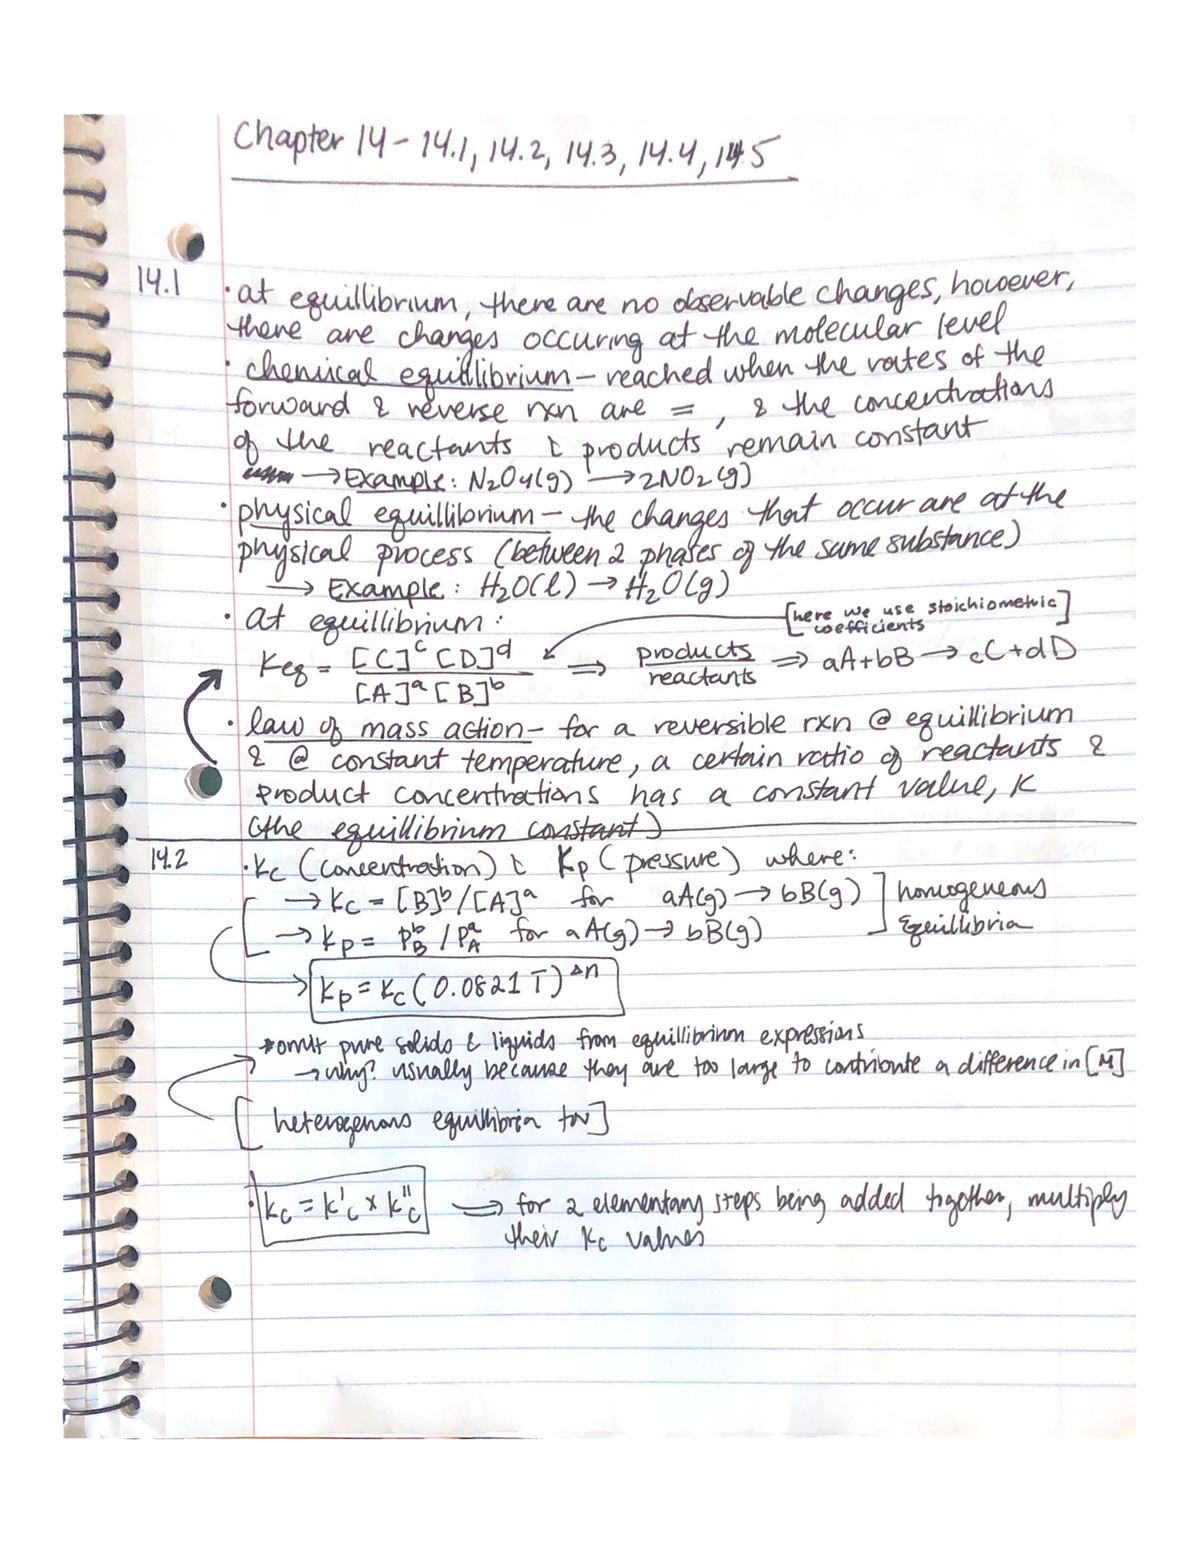 Chapter 14 - 14.1, 14.2, 14.3, 14.4, 14.5
14.1
· at equillibrium, there are no observable changes, however,
there are changes occuring at the molecular level
· chemical equillibrium - reached when the rates of the
forward & reverse rxn are = , & the concentrations
of the reactants & products remain constant
→ Example: N₂O₄(g) → 2NO₂(g)
· physical equillibrium - the changes that occur are at the
physical process (between 2 phases of the same substance)
→ Example: H₂O(l) → H₂O(g)
· at equillibrium: [here we use stoichiometric
coefficients]
Keq = [C]ᶜ[D]ᵈ / [A]ᵃ[B]ᵇ ⇒ products / reactants ⇒ aA + bB → cC + dD
· law of mass action - for a reversible rxn @ equillibrium
& @ constant temperature, a certain ratio of reactants &
product concentrations has a constant value, K
(the equillibrium constant)
14.2
· Kc (concentration) & Kp (pressure) where:
→ Kc = [B]ᵇ/[A]ᵃ for aA(g) → bB(g) ] homogeneous
→ Kp = P_Bᵇ / P_Aᵃ for aA(g) → bB(g) Equillibria
→ Kp = Kc(0.0821 T)^Δn
*omit pure solids & liquids from equillibrium expressions
→ why? usually because they are too large to contribute a difference in [M]
[heterogenous equillibria too]
· Kc = K'c x K''c ⇒ for 2 elementary steps being added together, multiply
their Kc values